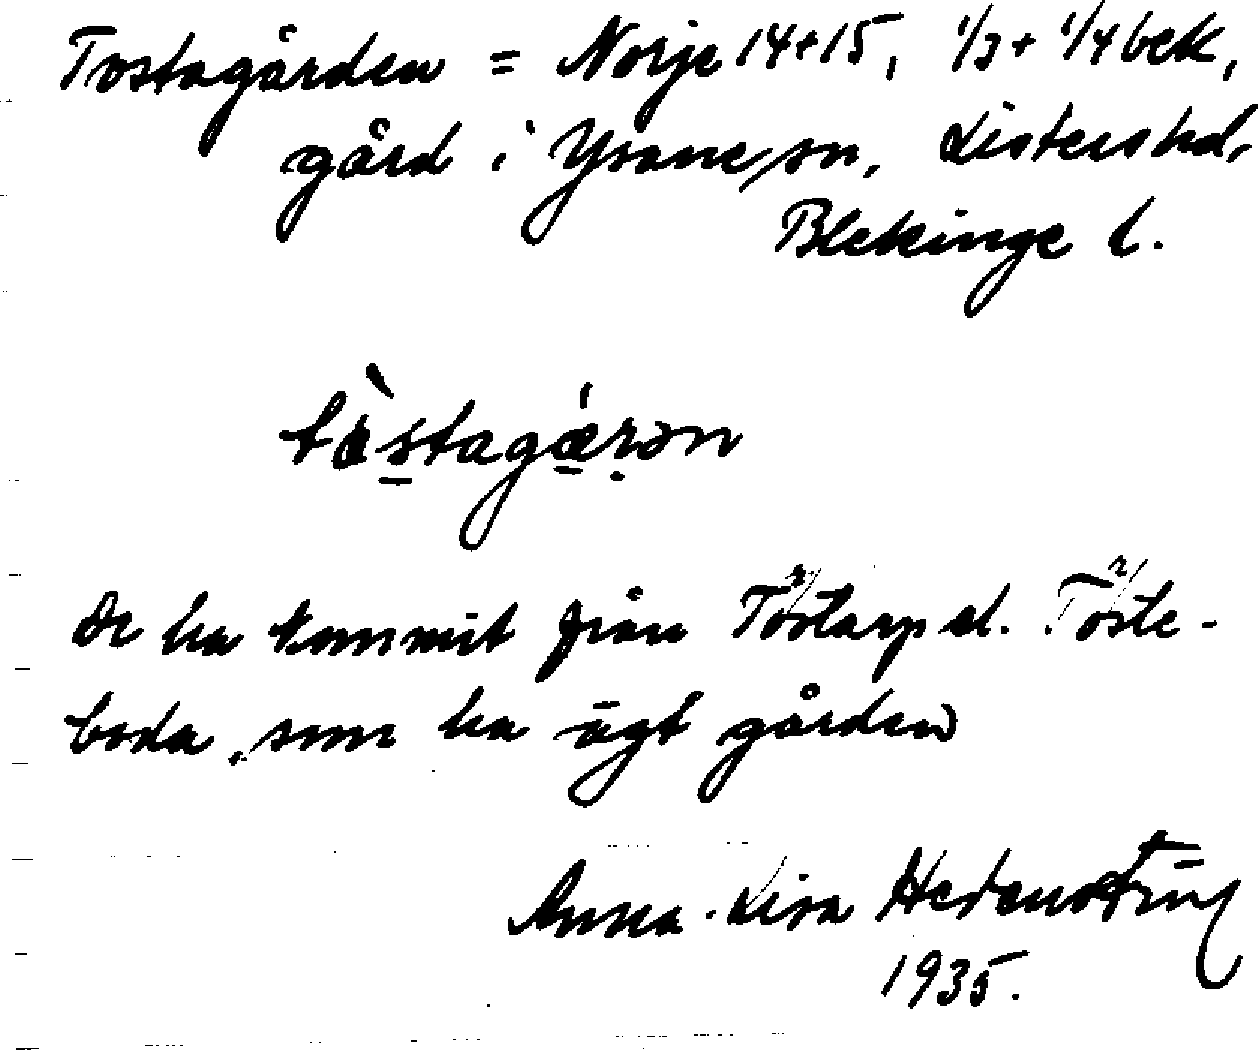 Tostagården = Norje 14+15, 1/3 + 1/4 bek,
gård i Ysane sn, Listers hd,
Blekinge l.
tòstagǽrən
De ha kommit från Tostarp el. Toste-
boda, som ha ägt gården
Anna-Lisa Hedenstring
1935.